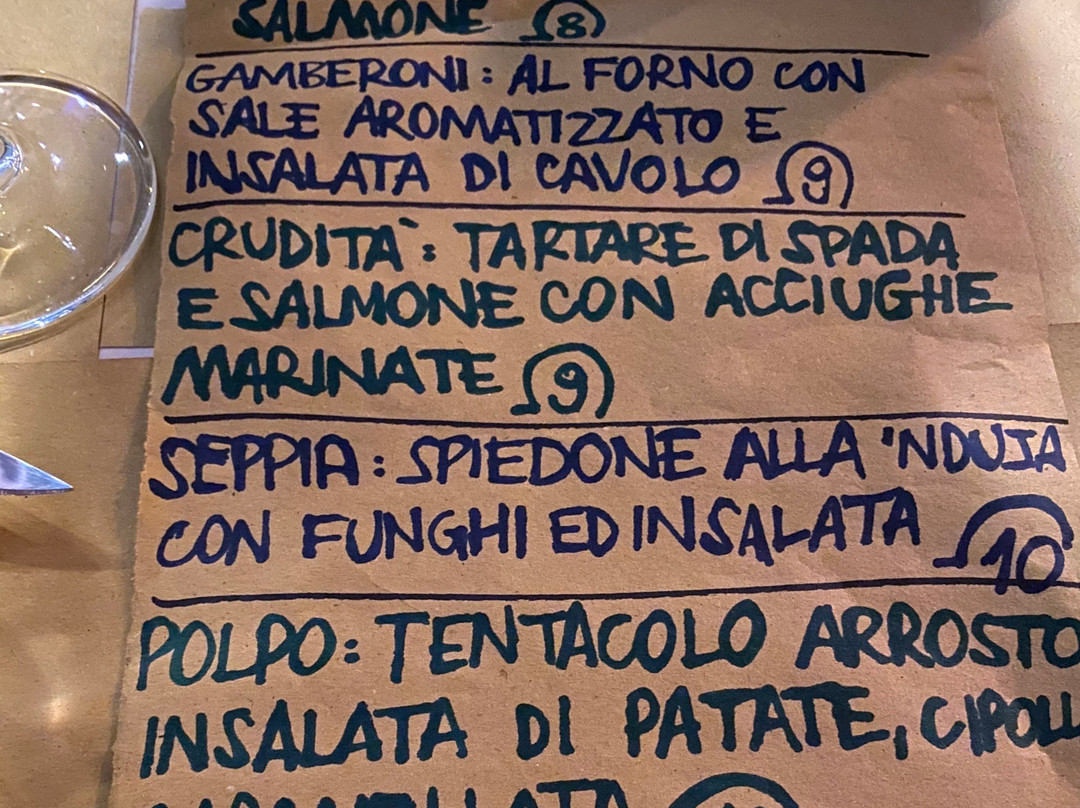 SALMONE 8
GAMBERONI: AL FORNO CON
SALE AROMATIZZATO E
INSALATA DI CAVOLO 9
CRUDITÀ: TARTARE DI SPADA
E SALMONE CON ACCIUGHE
MARINATE 9
SEPPIA: SPIEDONE ALLA 'NDUJA
CON FUNGHI ED INSALATA 10
POLPO: TENTACOLO ARROSTO
INSALATA DI PATATE, CIPOLL